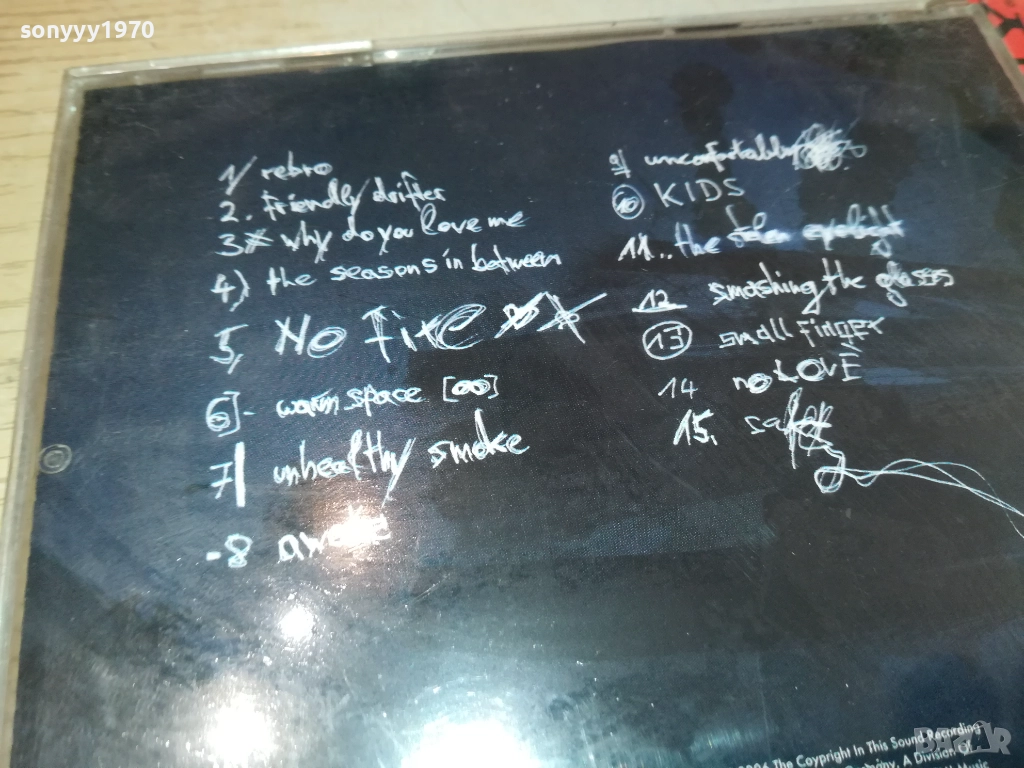 sonyyy1970
1/ retro
2. friendly drifter
3 why do you love me
4) the seasons in between
5, No Fire
6]- warm space [∞]
7| unhealthy smoke
-8 awake
9/ uncomfortably
10 KIDS
11.. the
12 smashing the glasses
13 small finger
14 no LOVE
15.
The Coypright In This Sound Recording
A Division of
Music
BAZAR